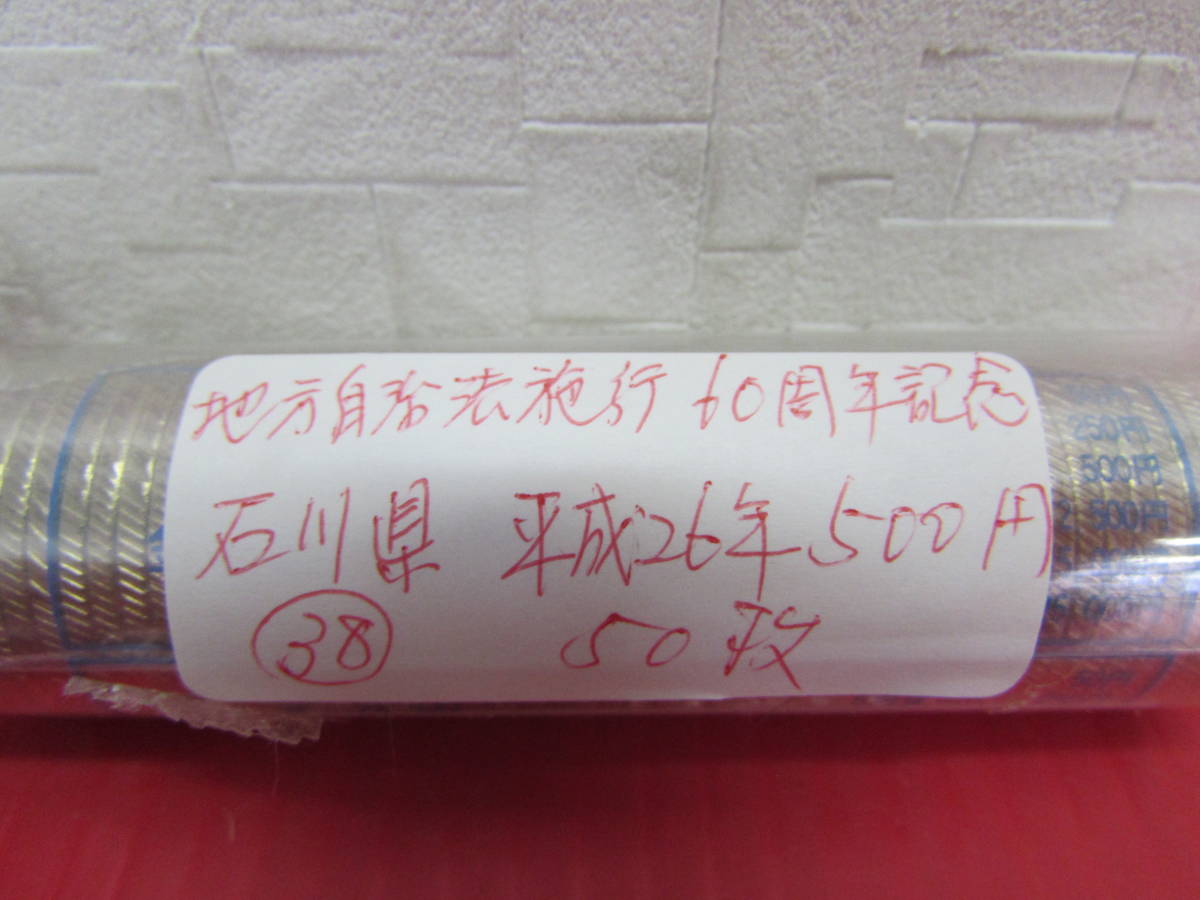 地方自治法施行60周年記念
石川県 平成26年 500円
㊳ 50枚
250円
500円
500円